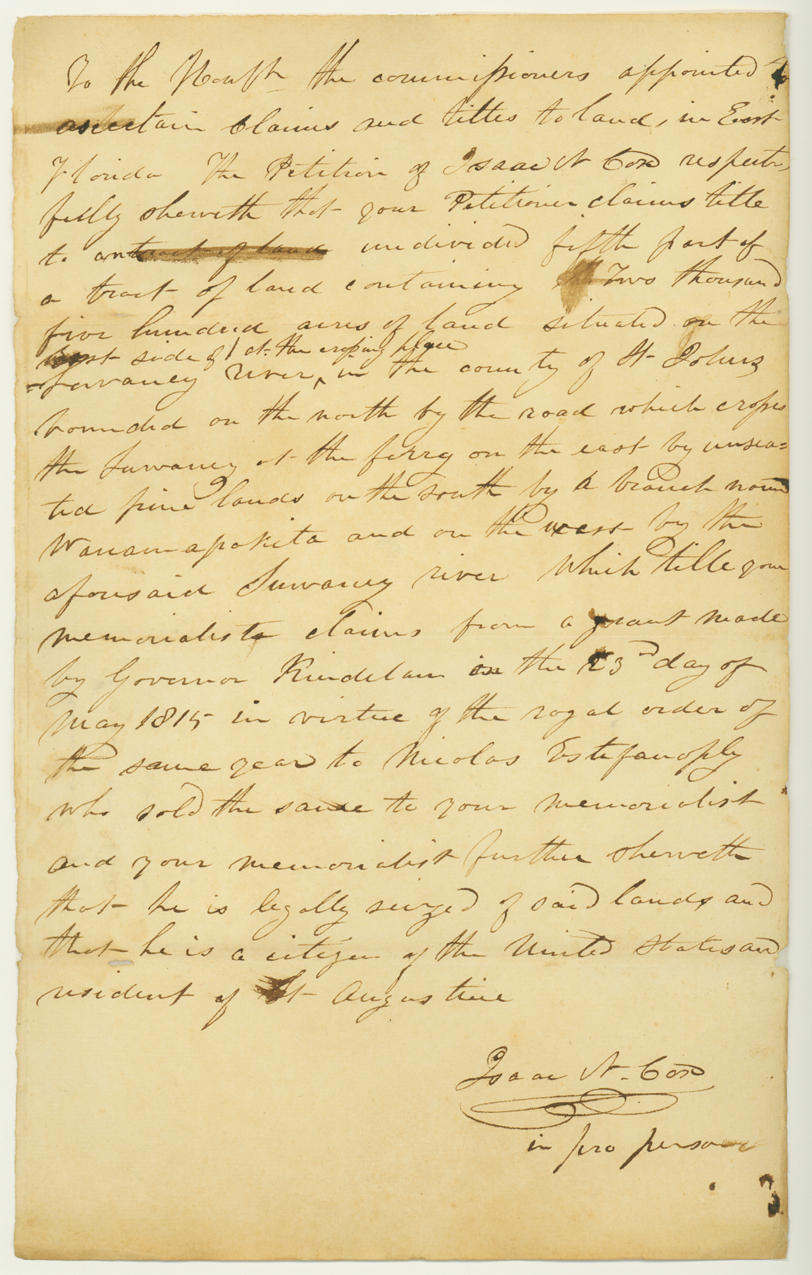 To the Honble the commissioners appointed to
ascertain Claims and titles to land, in East
Florida The Petition of Isaac N Cox respect-
fully sheweth that your Petitioner claims title
to an undivided fifth part of
a tract of land containing Two thousand
five hundred acres of land situated on the
East side of at the crossing place
Suwaney river, in the county of St Johns
bounded on the north by the road which crosses
the Suwaney at the ferry on the east by unsea=
ted pine lands on the south by a branch named
Wanamapokita and on the west by the
aforesaid Suwaney river Which title your
memorialist claims from a grant made
by Governor Kindelan on the 23rd day of
May 1815 in virtue of the royal order of
the same year to Nicolas Estefanoply
who sold the same to your memorialist
and your memorialist further sheweth
that he is legally seized of said lands and
that he is a citizen of the United States and
resident of St Augustine
Isaac N. Cox
in pro persona